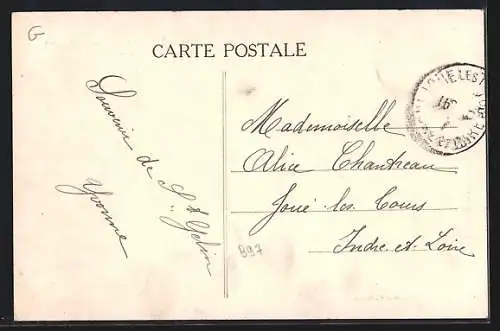 G
CARTE POSTALE
Souvenir de St Gelin
Yvonne
Mademoiselle
Alice Chantreau
Joué les Tours
Indre et Loire
997